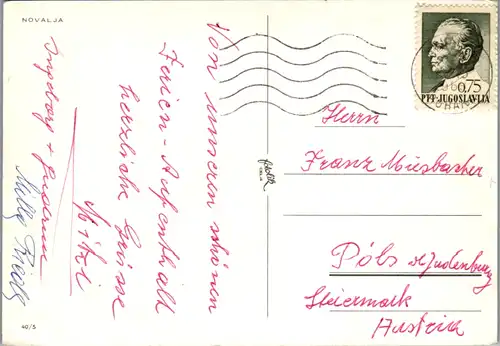 NOVALJA
Von unseren schönen
Ferien-Aufenthalt
herzliche Grüsse
Mitzi
Ingeborg +
40/5
0,75
PTT-JUGOSLAVIJA
Herrn
Franz Miesbacher
Pöls b/Judenburg
Steiermark
Austria